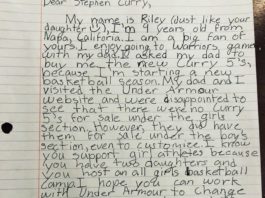 Dear Stephen Curry,
My name is Riley (just like your
daughter), I'm 9 years old from
Napa, California. I am a big fan of
yours. I enjoy going to Warriors games
with my dad. I asked my dad to
buy me the new Curry 5's,
because I'm starting a new
basketball season. My dad and I
visited the Under Armour
website and were disappointed to
see that there were no Curry
5's for sale under the girls
section. However, they did have
them for sale under the boy's
section, even to customize. I know
you support girl athletes because
you have two daughters and
you host an all girls basketball
camp. I hope you can work
with Under Armour to change